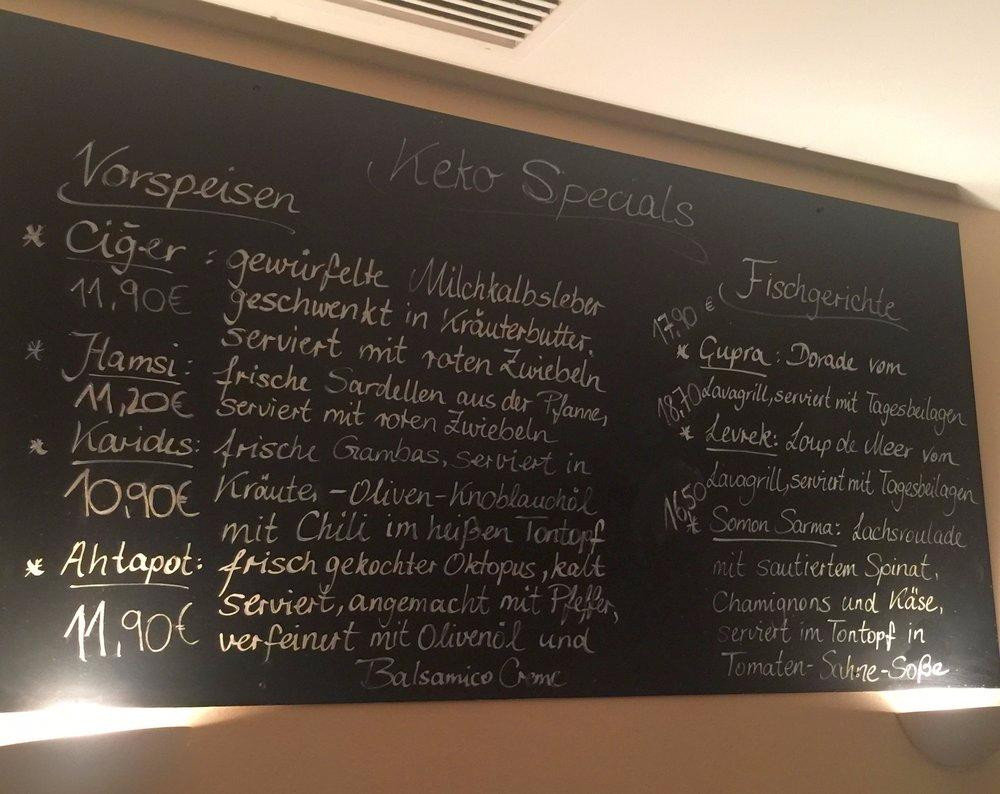 Keko Specials
Vorspeisen
* Ciğer : gewürfelte Milchkalbsleber
11,90€ geschwenkt in Kräuterbutter.
serviert mit roten Zwiebeln
* Hamsi: frische Sardellen aus der Pfanne,
11,20€ serviert mit roten Zwiebeln
* Karides: frische Gambas, serviert in
10,90€ Kräuter-Oliven-Knoblauchöl
mit Chili im heißen Tontopf
* Ahtapot: frisch gekochter Oktopus, kalt
11,90€ serviert, angemacht mit Pfeffer,
verfeinert mit Olivenöl und
Balsamico Creme
Fischgerichte
17,90 €
* Çupra: Dorade vom
Lavagrill, serviert mit Tagesbeilagen
18,70
* Levrek: Loup de Meer vom
Lavagrill, serviert mit Tagesbeilagen
16,50
* Somon Sarma: Lachsroulade
mit sautiertem Spinat,
Chamignons und Käse,
serviert im Tontopf in
Tomaten-Sahne-Soße